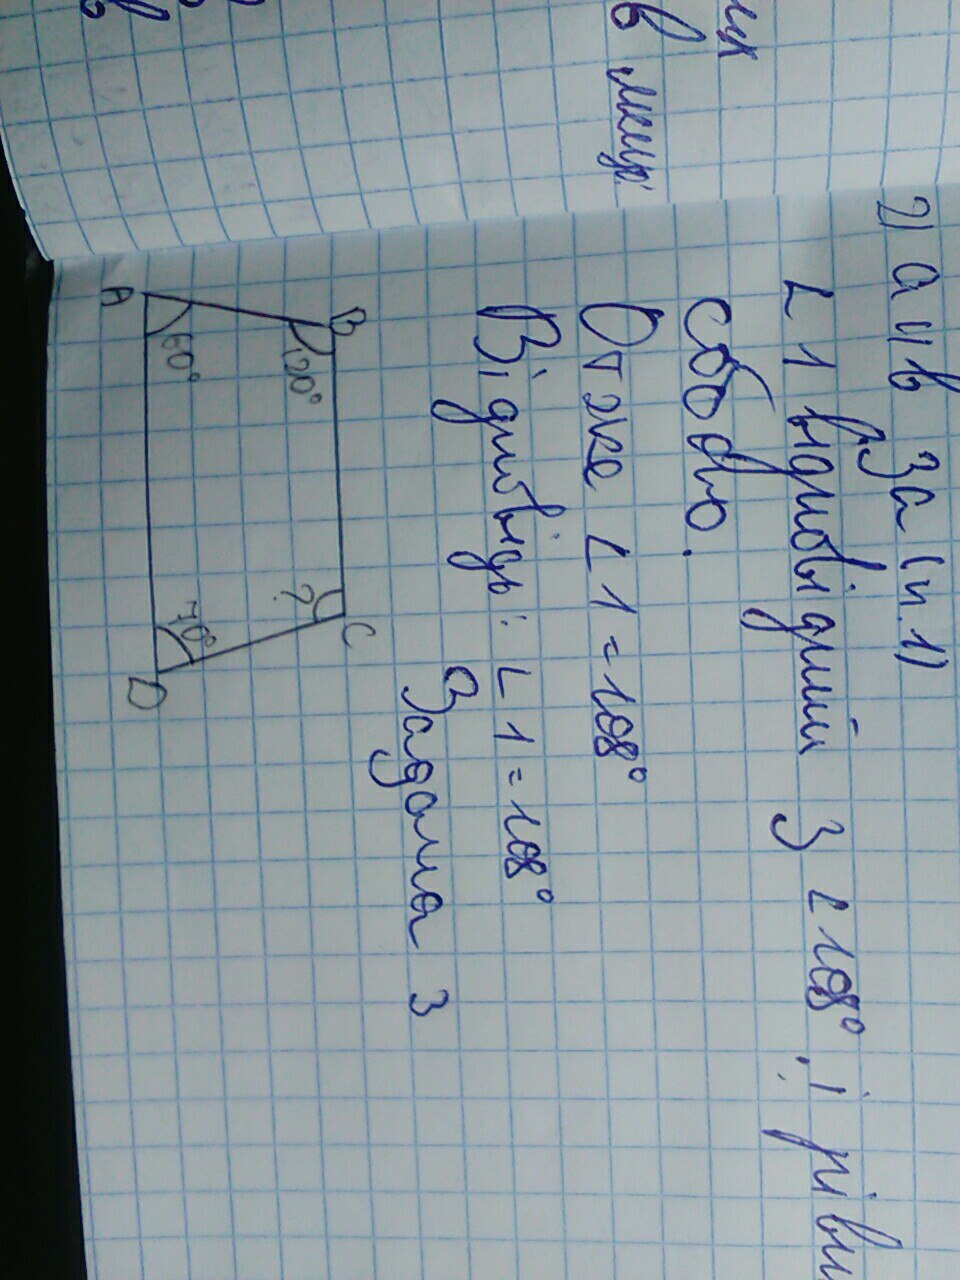 2) a || b за (п.1)
∠1 відповідний з ∠108°, і рівні
собою.
Отже ∠1 = 108°
Відповідь: ∠1 = 108°
Задача 3
B C
120° ?
60° 70°
A D